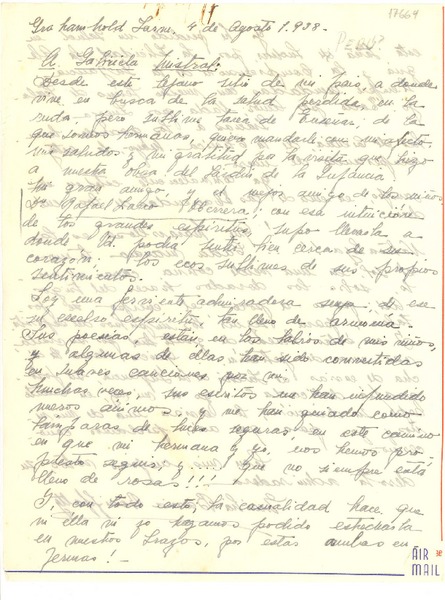 17664
Graham hold Farm. 4 de Agosto 1.938.-
Perú?
A Gabriela Mistral:
Desde este lejano sitio de mi país, a donde
vine en busca de la salud perdida, en la
ruda, pero sublime tarea de enseñar, de la
que somos hermanas, quiero mandarle con mi afecto
mis saludos y mi gratitud, por la visita que hizo
a nuestra obra del Jardín de la Infancia
Un gran amigo, y el mejor amigo de los niños
Dr. Rafael Larco Herrera, con esa intuición
de los grandes espíritus, supo llevarla a
donde Ud. podía sentir bien cerca de su
corazón, los ecos sublimes de sus propios
sentimientos.
Soy una ferviente admiradora suya, de en
su excelso espíritu, tan lleno de armonía.
Sus poesías, están en los labios de mis niños,
y algunas de ellas han sido convertidas
en suaves canciones por mí.
Muchas veces, sus escritos me han infundido
nuevos ánimos, y me han guiado como
lámparas de luces seguras, en este camino
en que mi hermana y yo, nos hemos pro-
puesto seguir, y que no siempre está
lleno de rosas!!!
Y, con todo esto, la casualidad hace que
ni ella ni yo hayamos podido estrecharla
en nuestros brazos, por estar ambas en-
fermas!-
AIR
MAIL